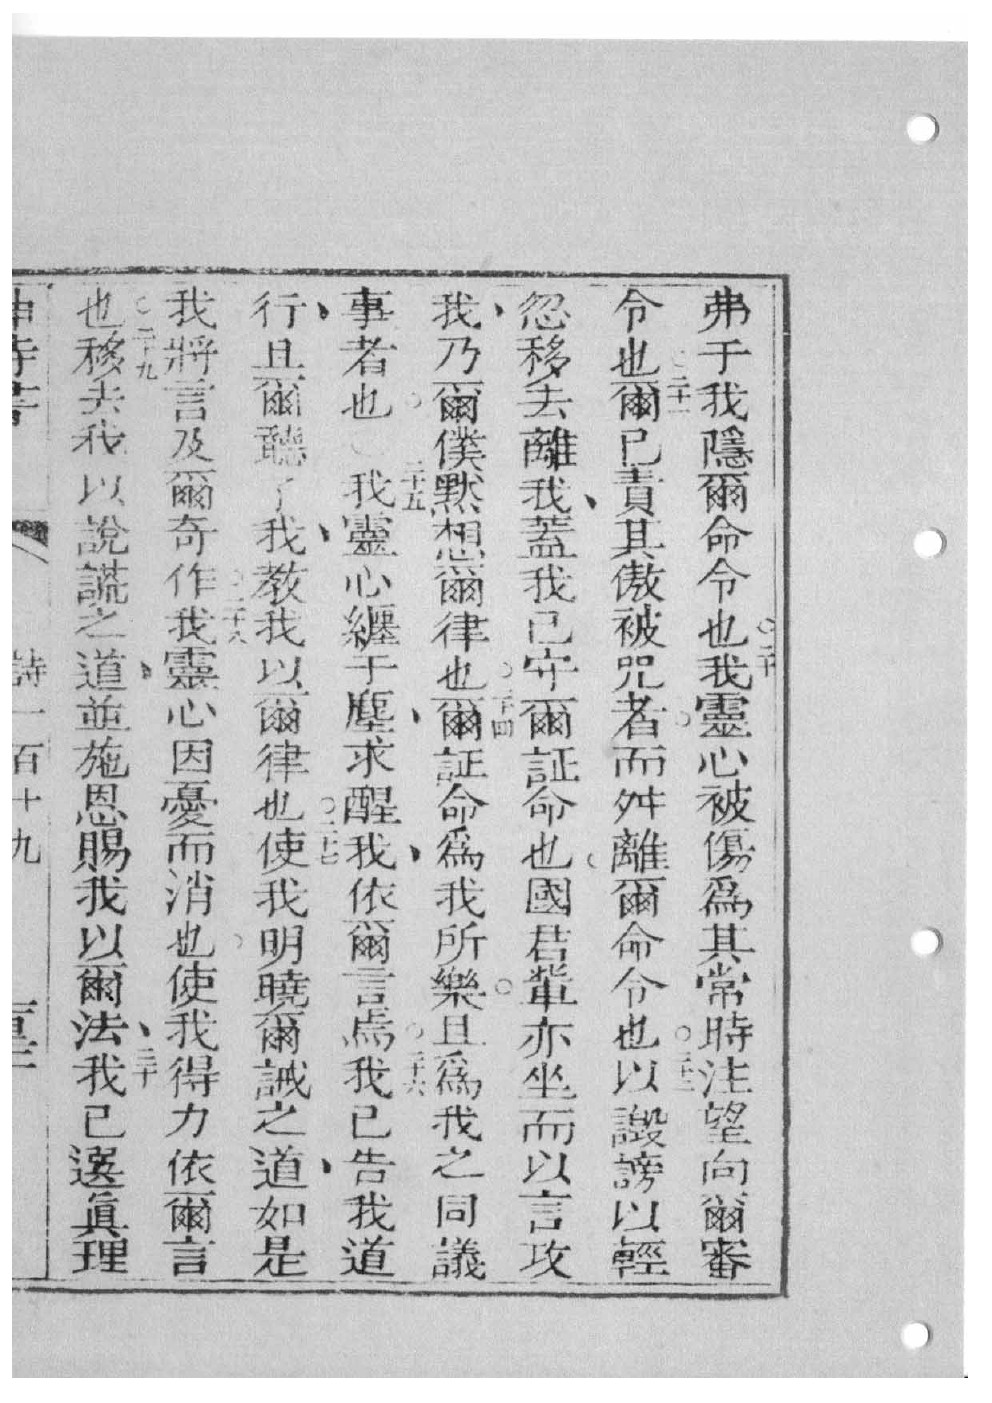 弗于我隱爾命令也○二十我靈心被傷爲其常時注望向爾審
令也○二十一爾已責其傲被咒者○而舛離爾命令也○二十二以譭謗以輕
忽移去離我、蓋我已守爾証命也國君輩亦坐而以言攻
我、乃爾僕默想爾律也○二十四爾証命爲我所樂○且爲我之同議
事者也○二十五我靈心纏于塵、求醒我、依爾言焉○二十六我已告我道
行、且爾聽了我、教我以爾律也○二十七使我明曉爾誡之道、如是
我將言及爾奇作○二十八我靈心因憂而消也○使我得力依爾言
也○二十九移去我以說謊之道、並施恩賜我以爾法、三十我已選眞理
神詩書 詩一百十九